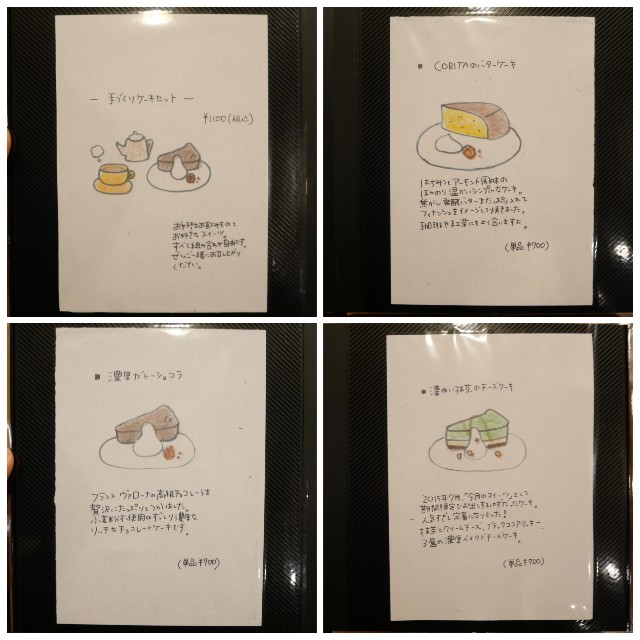 ― 手づくりケーキセット ―
¥1100(税込)
お好きなお飲みものと
お好きなスイーツ。
すべて組み合わせ自由です。
ぜひご一緒にお召し上がり
ください。
■ CORITAのバターケーキ
はちみつとアーモンド風味の
ほんのり温かいシンプルなケーキ。
焦がし発酵バターをたっぷり入れて
フィナンシェをイメージして焼きました。
珈琲や紅茶にもよく合いますよ。
(単品¥700)
■ 濃厚ガトーショコラ
フランス ヴァローナの高級チョコレートを
贅沢にたっぷりとつかいました。
小麦粉不使用のずっしり濃厚な
リッチなチョコレートケーキです。
(単品¥700)
■ 濃ゆい抹茶のチーズケーキ
2015年9月、「今月のスイーツ」として
期間限定でお出しするはずだったケーキ。
人気すぎて定番になりました!
抹茶とクリームチーズ、ブラックココアクッキー
3層の濃厚ベイクドチーズケーキ。
(単品¥700)